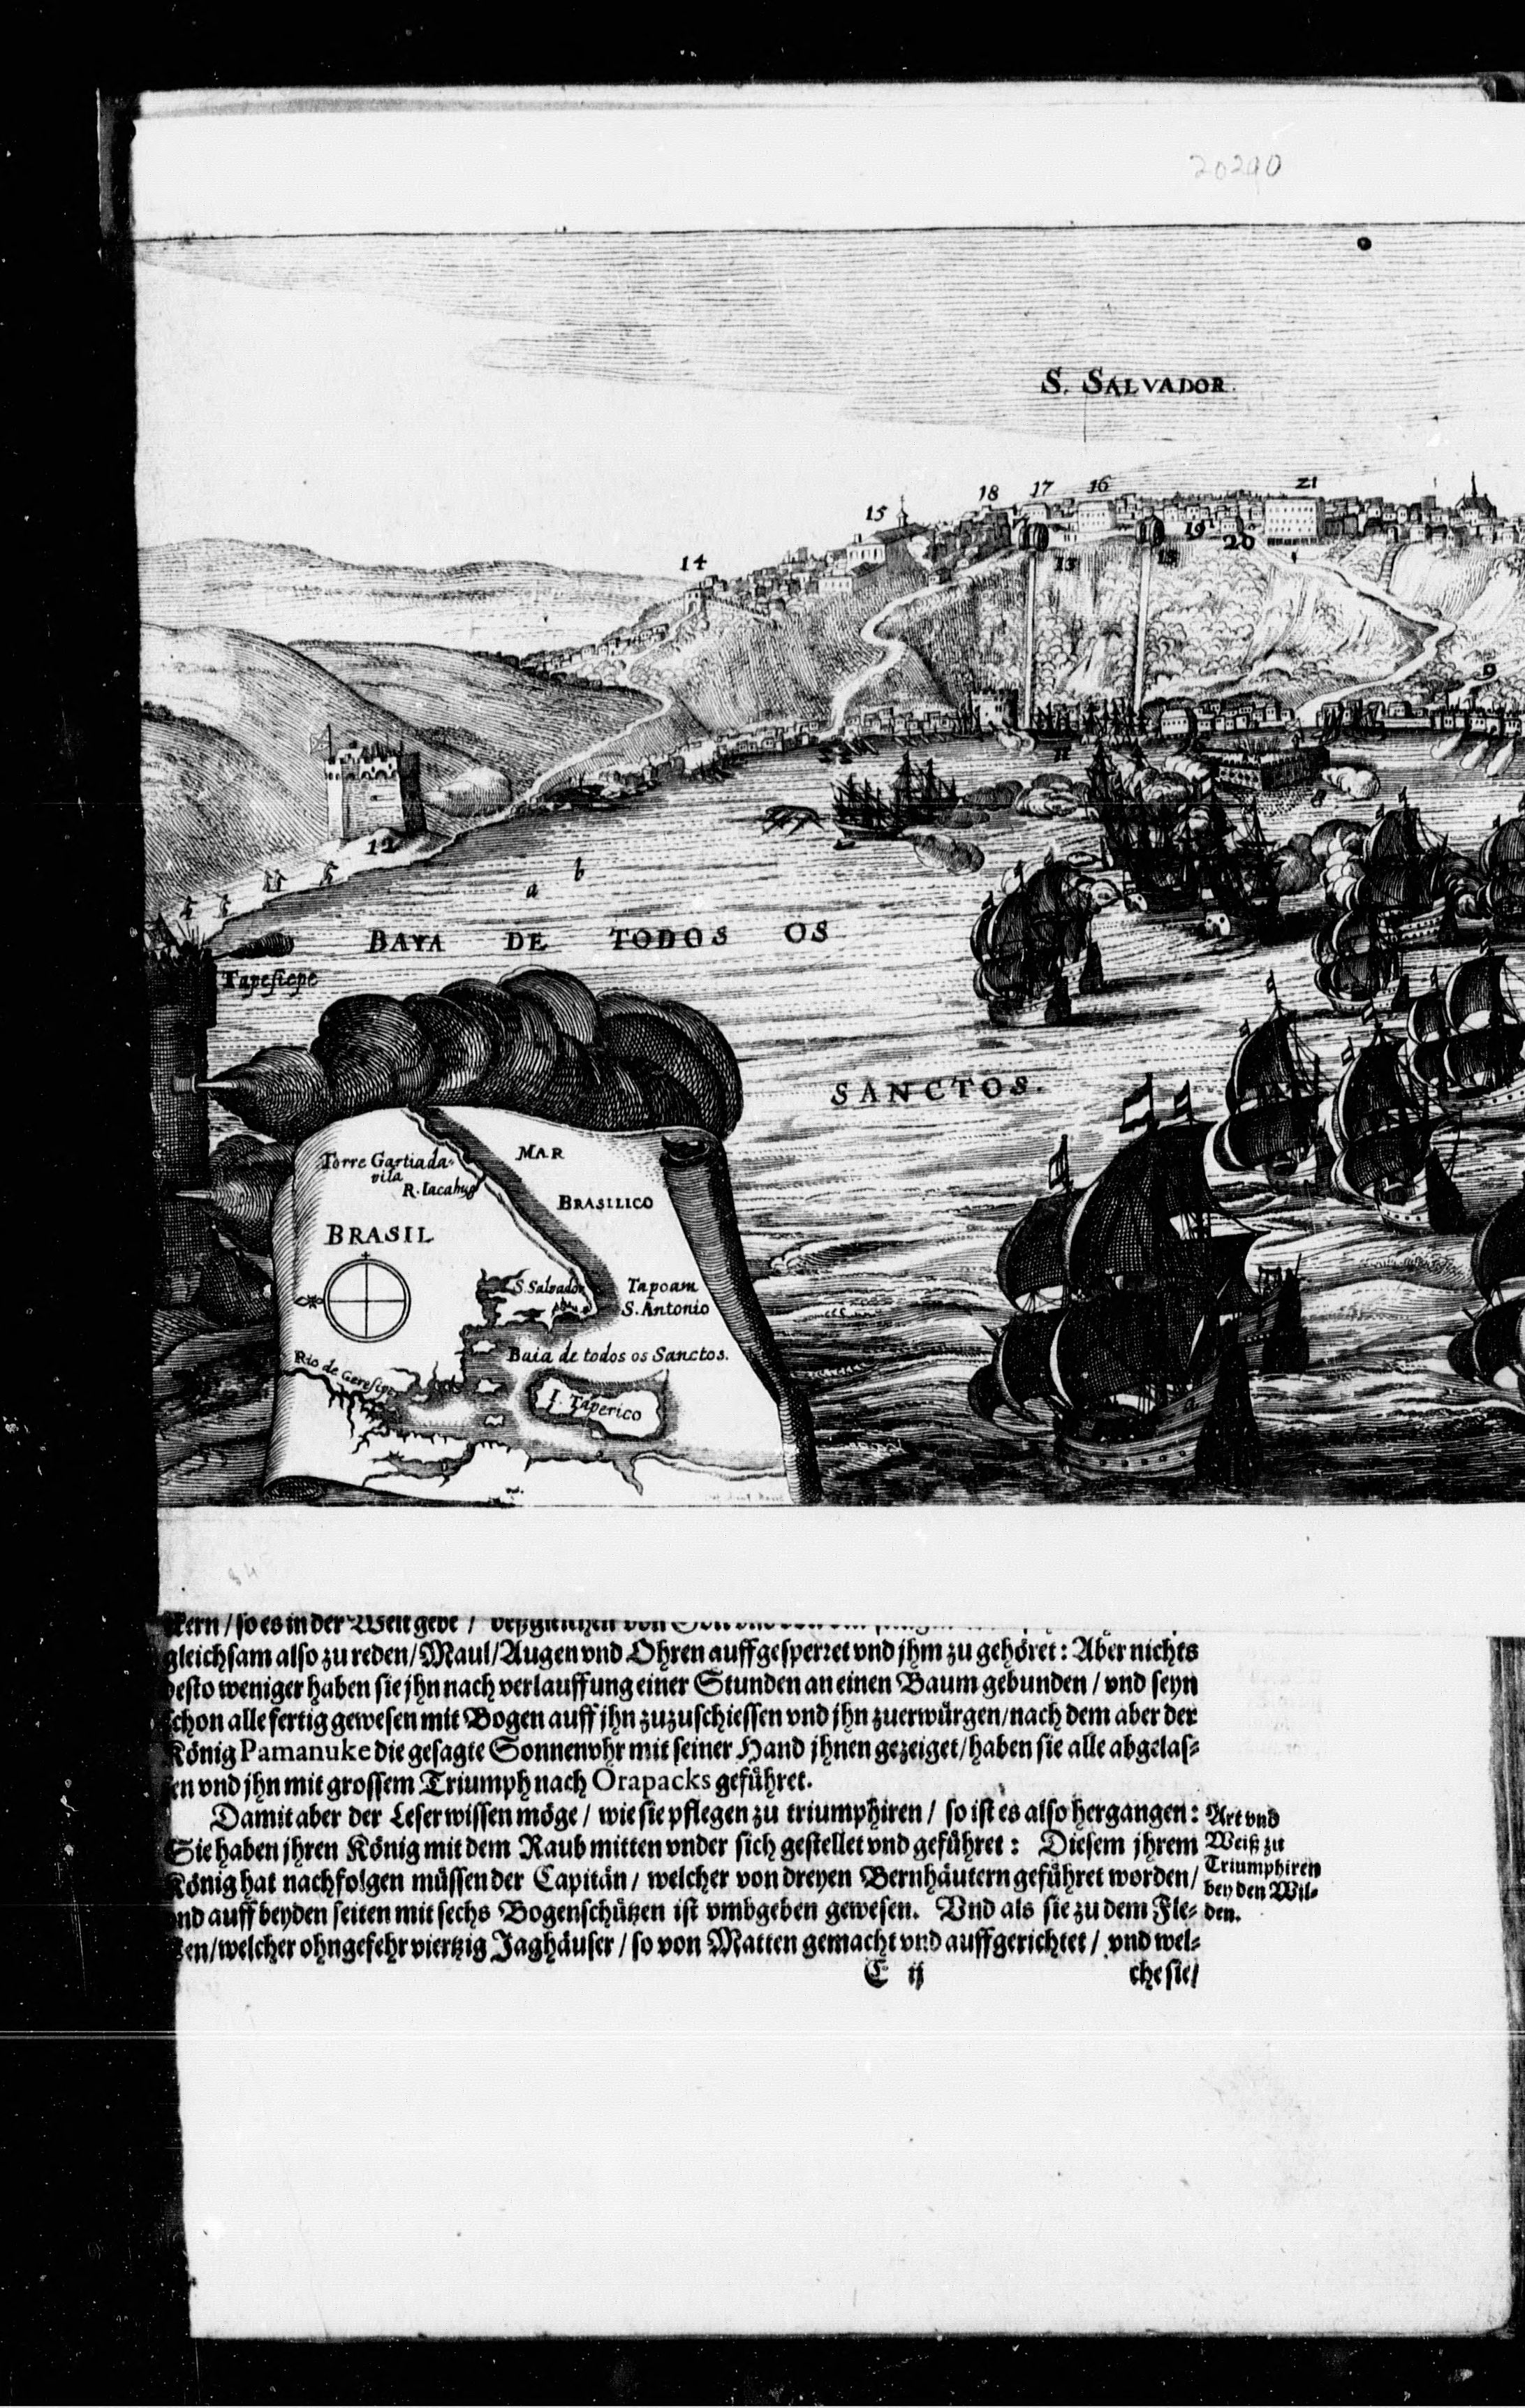 20290
S. SALVADOR.
14
15
18
17
16
21
13
13
19
20
9
11
8
12
a
b
BAYA DE TODOS OS
SANCTOS.
Tapesiepe
Torre Gartiada-
vila
R. Iacahug
MAR
BRASILICO
BRASIL
S. Salvador
Tapoam
S. Antonio
Baia de todos os Sanctos.
Rio de Geresipe
I. Taperico
kern / so es in der Welt gebe /
gleichsam also zu reden / Maul / Augen vnd Ohren auffgesperret vnd jhm zu gehöret: Aber nichts
desto weniger haben sie jhn nach verlauffung einer Stunden an einen Baum gebunden / vnd seyn
schon alle fertig gewesen mit Bogen auff jhn zuzuschiessen vnd jhn zuerwürgen / nach dem aber der
König Pamanuke die gesagte Sonnenvhr mit seiner Hand jhnen gezeiget / haben sie alle abgelas-
sen vnd jhn mit grossem Triumph nach Orapacks geführet.
Damit aber der Leser wissen möge / wie sie pflegen zu triumphiren / so ist es also hergangen:
Sie haben jhren König mit dem Raub mitten vnder sich gestellet vnd geführet: Diesem jhrem
König hat nachfolgen müssen der Capitän / welcher von dreyen Bernhäutern geführet worden /
vnd auff beyden seiten mit sechs Bogenschützen ist vmbgeben gewesen. Vnd als sie zu dem Fle-
cken / welcher ohngefehr viertzig Jaghäuser / so von Matten gemacht vnd auffgerichtet / vnd wel-
C ij
che sie /
Art vnd
Weiß zu
Triumphiren
bey den Wil-
den.